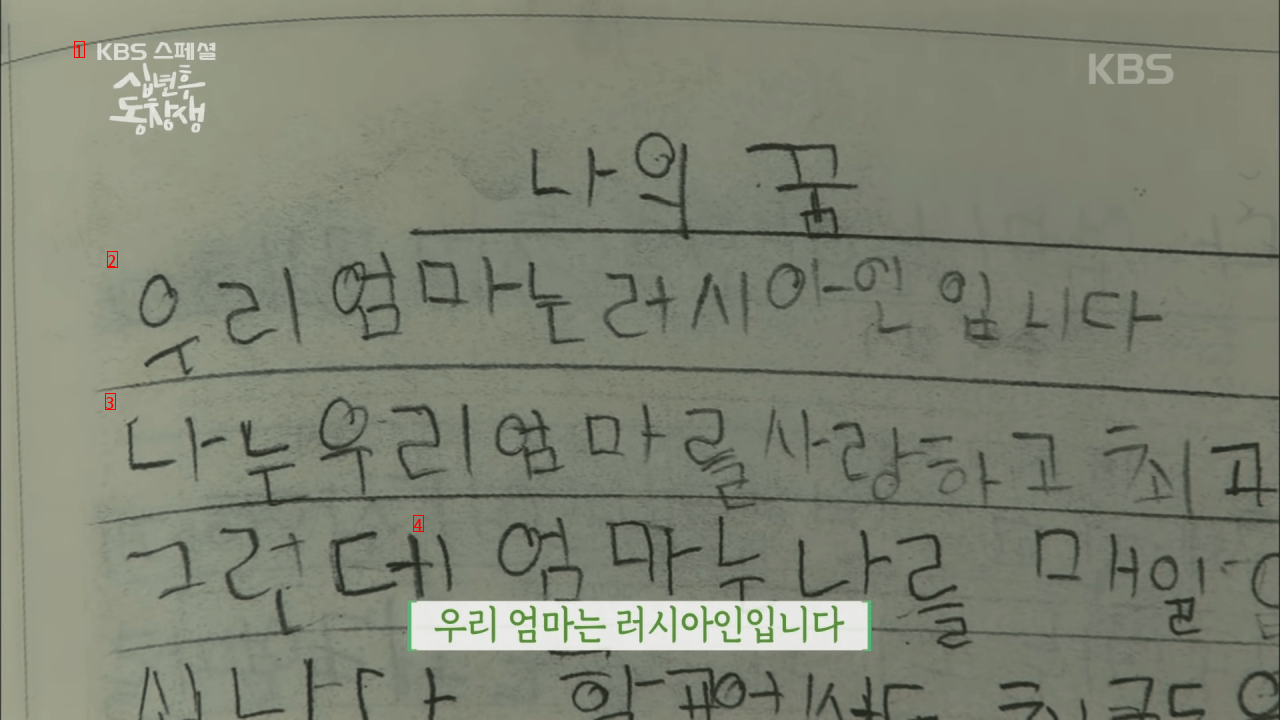 1 KBS 스페셜
십년후
동창생
KBS
나의 꿈
2
우리 엄마는 러시아인 입니다
3
나는 우리 엄마를 사랑하고 최고
4
그런데 엄마는 나를 매일
우리 엄마는 러시아인입니다